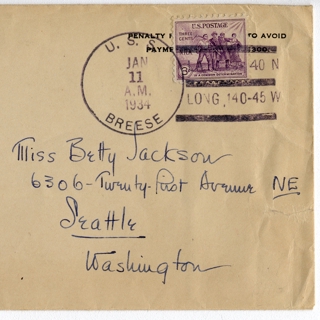 PENALTY TO AVOID
PAYME 300.
U.S. POSTAGE
THREE CENTS
U. S. S.
JAN
11
A.M.
1934
BREESE
40 N
LONG, 140-45 W
Miss Betty Jackson
6306-Twenty-first Avenue NE
Seattle
Washington